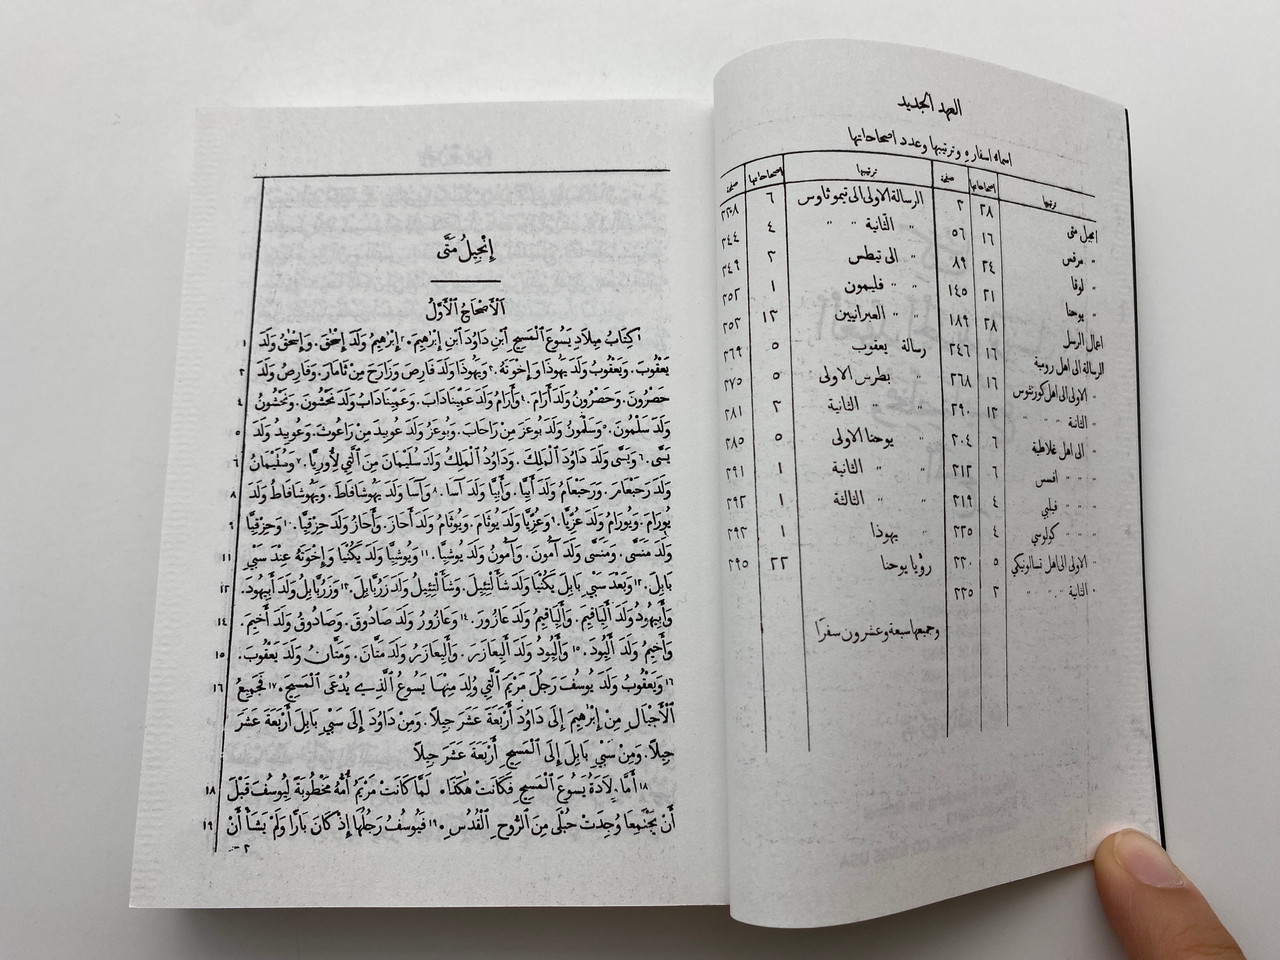 العهد الجديد
اسماء اسفاره وترتيبها وعدد اصحاحاتها
ترتيبها اصحاحاتها صفحة ترتيبها اصحاحاتها صفحة
انجيل متى ٢٨ ٢ الرسالة الاولى الى تيموثاوس ٦
〃 مرقس ١٦ ٥٦ 〃 الثانية 〃 〃 ٤ ٢٤٤
〃 لوقا ٢٤ ٨٩ 〃 الى تيطس ٣ ٢٤٩
〃 يوحنا ٢١ ١٤٥ 〃 〃 فليمون ١ ٢٥٢
اعمال الرسل ٢٨ ١٨٩ 〃 〃 العبرانيين ١٣ ٢٥٣
الرسالة الى اهل رومية ١٦ ٢٤٦ رسالة يعقوب ٥ ٢٦٩
〃 الاولى الى اهل كورنثوس ١٦ ٢٦٨ 〃 بطرس الاولى ٥ ٢٧٥
〃 الثانية 〃 〃 ١٣ ٢٩٠ 〃 〃 الثانية ٣ ٢٨١
〃 الى اهل غلاطية ٦ ٣٠٤ 〃 يوحنا الاولى ٥ ٢٨٥
〃 〃 〃 افسس ٦ ٣١٢ 〃 〃 الثانية ١ ٢٩١
〃 〃 〃 فيلبي ٤ ٣١٩ 〃 〃 الثالثة ١ ٢٩٢
〃 〃 〃 كولوسي ٤ ٢٢٥ 〃 يهوذا ١ ٢٩٣
〃 الاولى الى اهل تسالونيكي ٥ ٢٣٠ رؤيا يوحنا ٢٢ ٢٩٥
〃 الثانية 〃 〃 〃 ٣ ٢٣٥
وجميعها سبعة وعشرون سفرًا
إِنْجِيلُ مَتَّى
اَلْأَصْحَاحُ ٱلْأَوَّلُ
١ كِتَابُ مِيلَادِ يَسُوعَ ٱلْمَسِيحِ ٱبْنِ دَاوُدَ ٱبْنِ إِبْرٰهِيمَ. ٢ إِبْرٰهِيمُ وَلَدَ إِسْحٰقَ. وَإِسْحٰقُ وَلَدَ
٣ يَعْقُوبَ. وَيَعْقُوبُ وَلَدَ يَهُوذَا وَإِخْوَتَهُ. ٣ وَيَهُوذَا وَلَدَ فَارِصَ وَزَارَحَ مِنْ ثَامَارَ. وَفَارِصُ وَلَدَ
٤ حَصْرُونَ. وَحَصْرُونُ وَلَدَ أَرَامَ. ٤ وَأَرَامُ وَلَدَ عَمِّينَادَابَ. وَعَمِّينَادَابُ وَلَدَ نَحْشُونَ. وَنَحْشُونُ
٥ وَلَدَ سَلْمُونَ. ٥ وَسَلْمُونُ وَلَدَ بُوعَزَ مِنْ رَاحَابَ. وَبُوعَزُ وَلَدَ عُوبِيدَ مِنْ رَاعُوثَ. وَعُوبِيدُ وَلَدَ
٦ يَسَّى. ٦ وَيَسَّى وَلَدَ دَاوُدَ ٱلْمَلِكَ. وَدَاوُدُ ٱلْمَلِكُ وَلَدَ سُلَيْمَانَ مِنَ ٱلَّتِي لِأُورِيَّا. ٧ وَسُلَيْمَانُ
٨ وَلَدَ رَحَبْعَامَ. وَرَحَبْعَامُ وَلَدَ أَبِيَّا. وَأَبِيَّا وَلَدَ آسَا. ٨ وَآسَا وَلَدَ يَهُوشَافَاطَ. وَيَهُوشَافَاطُ وَلَدَ
٩ يُورَامَ. وَيُورَامُ وَلَدَ عُزِّيَّا. ٩ وَعُزِّيَّا وَلَدَ يُوثَامَ. وَيُوثَامُ وَلَدَ أَحَازَ. وَأَحَازُ وَلَدَ حِزْقِيَّا. ١٠ وَحِزْقِيَّا
١١ وَلَدَ مَنَسَّى. وَمَنَسَّى وَلَدَ آمُونَ. وَآمُونُ وَلَدَ يُوشِيَّا. ١١ وَيُوشِيَّا وَلَدَ يَكُنْيَا وَإِخْوَتَهُ عِنْدَ سَبْيِ
١٢ بَابِلَ. ١٢ وَبَعْدَ سَبْيِ بَابِلَ يَكُنْيَا وَلَدَ شَأَلْتِئِيلَ. وَشَأَلْتِئِيلُ وَلَدَ زَرُبَّابِلَ. ١٣ وَزَرُبَّابِلُ وَلَدَ أَبِيهُودَ.
١٤ وَأَبِيهُودُ وَلَدَ أَلِيَاقِيمَ. وَأَلِيَاقِيمُ وَلَدَ عَازُورَ. ١٤ وَعَازُورُ وَلَدَ صَادُوقَ. وَصَادُوقُ وَلَدَ أَخِيمَ.
١٥ وَأَخِيمُ وَلَدَ أَلِيُودَ. ١٥ وَأَلِيُودُ وَلَدَ أَلِيعَازَرَ. وَأَلِيعَازَرُ وَلَدَ مَتَّانَ. وَمَتَّانُ وَلَدَ يَعْقُوبَ.
١٦ ١٦ وَيَعْقُوبُ وَلَدَ يُوسُفَ رَجُلَ مَرْيَمَ ٱلَّتِي وُلِدَ مِنْهَا يَسُوعُ ٱلَّذِي يُدْعَى ٱلْمَسِيحَ. ١٧ فَجَمِيعُ
ٱلْأَجْيَالِ مِنْ إِبْرٰهِيمَ إِلَى دَاوُدَ أَرْبَعَةَ عَشَرَ جِيلًا. وَمِنْ دَاوُدَ إِلَى سَبْيِ بَابِلَ أَرْبَعَةَ عَشَرَ
جِيلًا. وَمِنْ سَبْيِ بَابِلَ إِلَى ٱلْمَسِيحِ أَرْبَعَةَ عَشَرَ جِيلًا
١٨ ١٨ أَمَّا وِلَادَةُ يَسُوعَ ٱلْمَسِيحِ فَكَانَتْ هٰكَذَا. لَمَّا كَانَتْ مَرْيَمُ أُمُّهُ مَخْطُوبَةً لِيُوسُفَ قَبْلَ
١٩ أَنْ يَجْتَمِعَا وُجِدَتْ حُبْلَى مِنَ ٱلرُّوحِ ٱلْقُدُسِ. ١٩ فَيُوسُفُ رَجُلُهَا إِذْ كَانَ بَارًّا وَلَمْ يَشَأْ أَنْ
٢